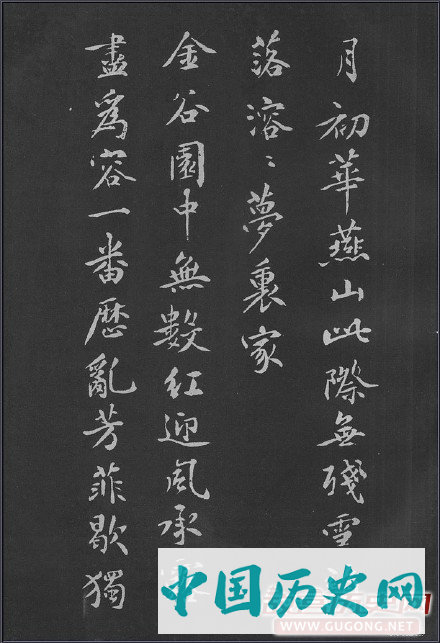 月初華燕山此際無殘雪
落溶〻夢裏家
金谷園中無數紅迎風承
盡為容一番歷亂芳菲歇獨
中国历史网
WWW.GUGONG.NET